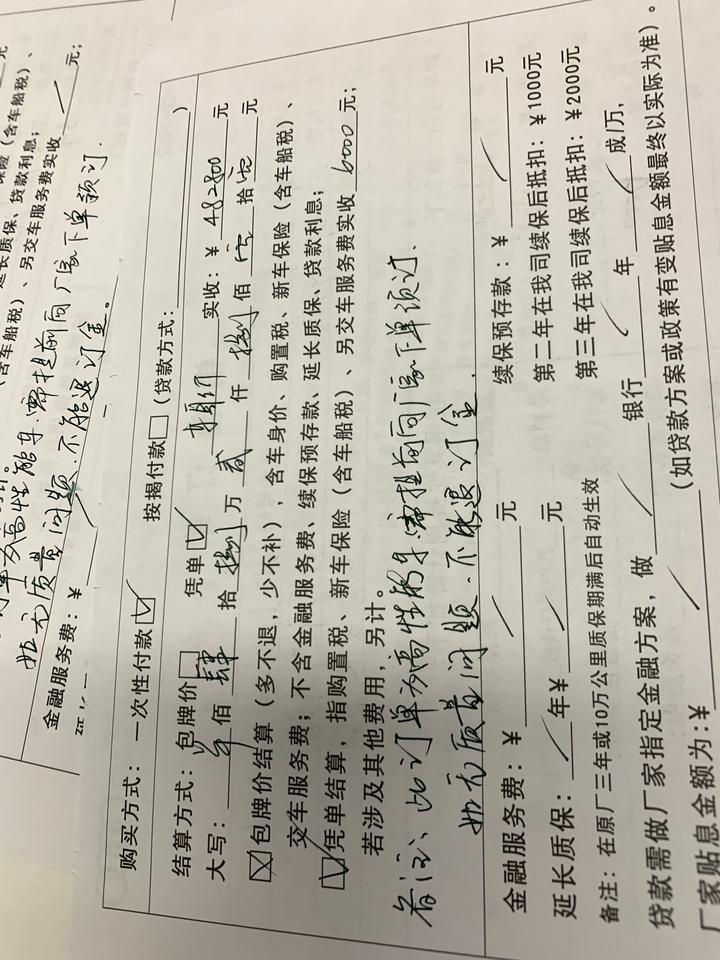 险（含车船税）、
延长质保、贷款利息；
（含车船税）、另交车服务费实收 元；
订单为高性能车.需提前向厂家下单预订.
如无质量问题.不能退订金.
金融服务费：¥
购买方式：一次性付款☑ 按揭付款□（贷款方式： ）
结算方式：包牌价□ 凭单☑ 车身价 实收：¥ 482800 元
大写： 佰 肆 拾 捌 万 贰 仟 捌 佰 零 拾 零 元
☒包牌价结算（多不退，少不补），含车身价、购置税、新车保险（含车船税）、
交车服务费；不含金融服务费、续保预存款、延长质保、贷款利息；
☑凭单结算，指购置税、新车保险（含车船税）、另交车服务费实收 6000 元；
若涉及其他费用，另计。
备注：此订单为高性能车.需提前向厂家下单预订.
如无质量问题.不能退订金.
金融服务费：¥ 元 续保预存款：¥ 元
延长质保： 年¥ 元 第二年在我司续保后抵扣：¥1000元
备注：在原厂三年或10万公里质保期满后自动生效 第三年在我司续保后抵扣：¥2000元
贷款需做厂家指定金融方案，做 银行 年 成/万，
厂家贴息金额为：¥ （如贷款方案或政策有变贴息金额最终以实际为准）。